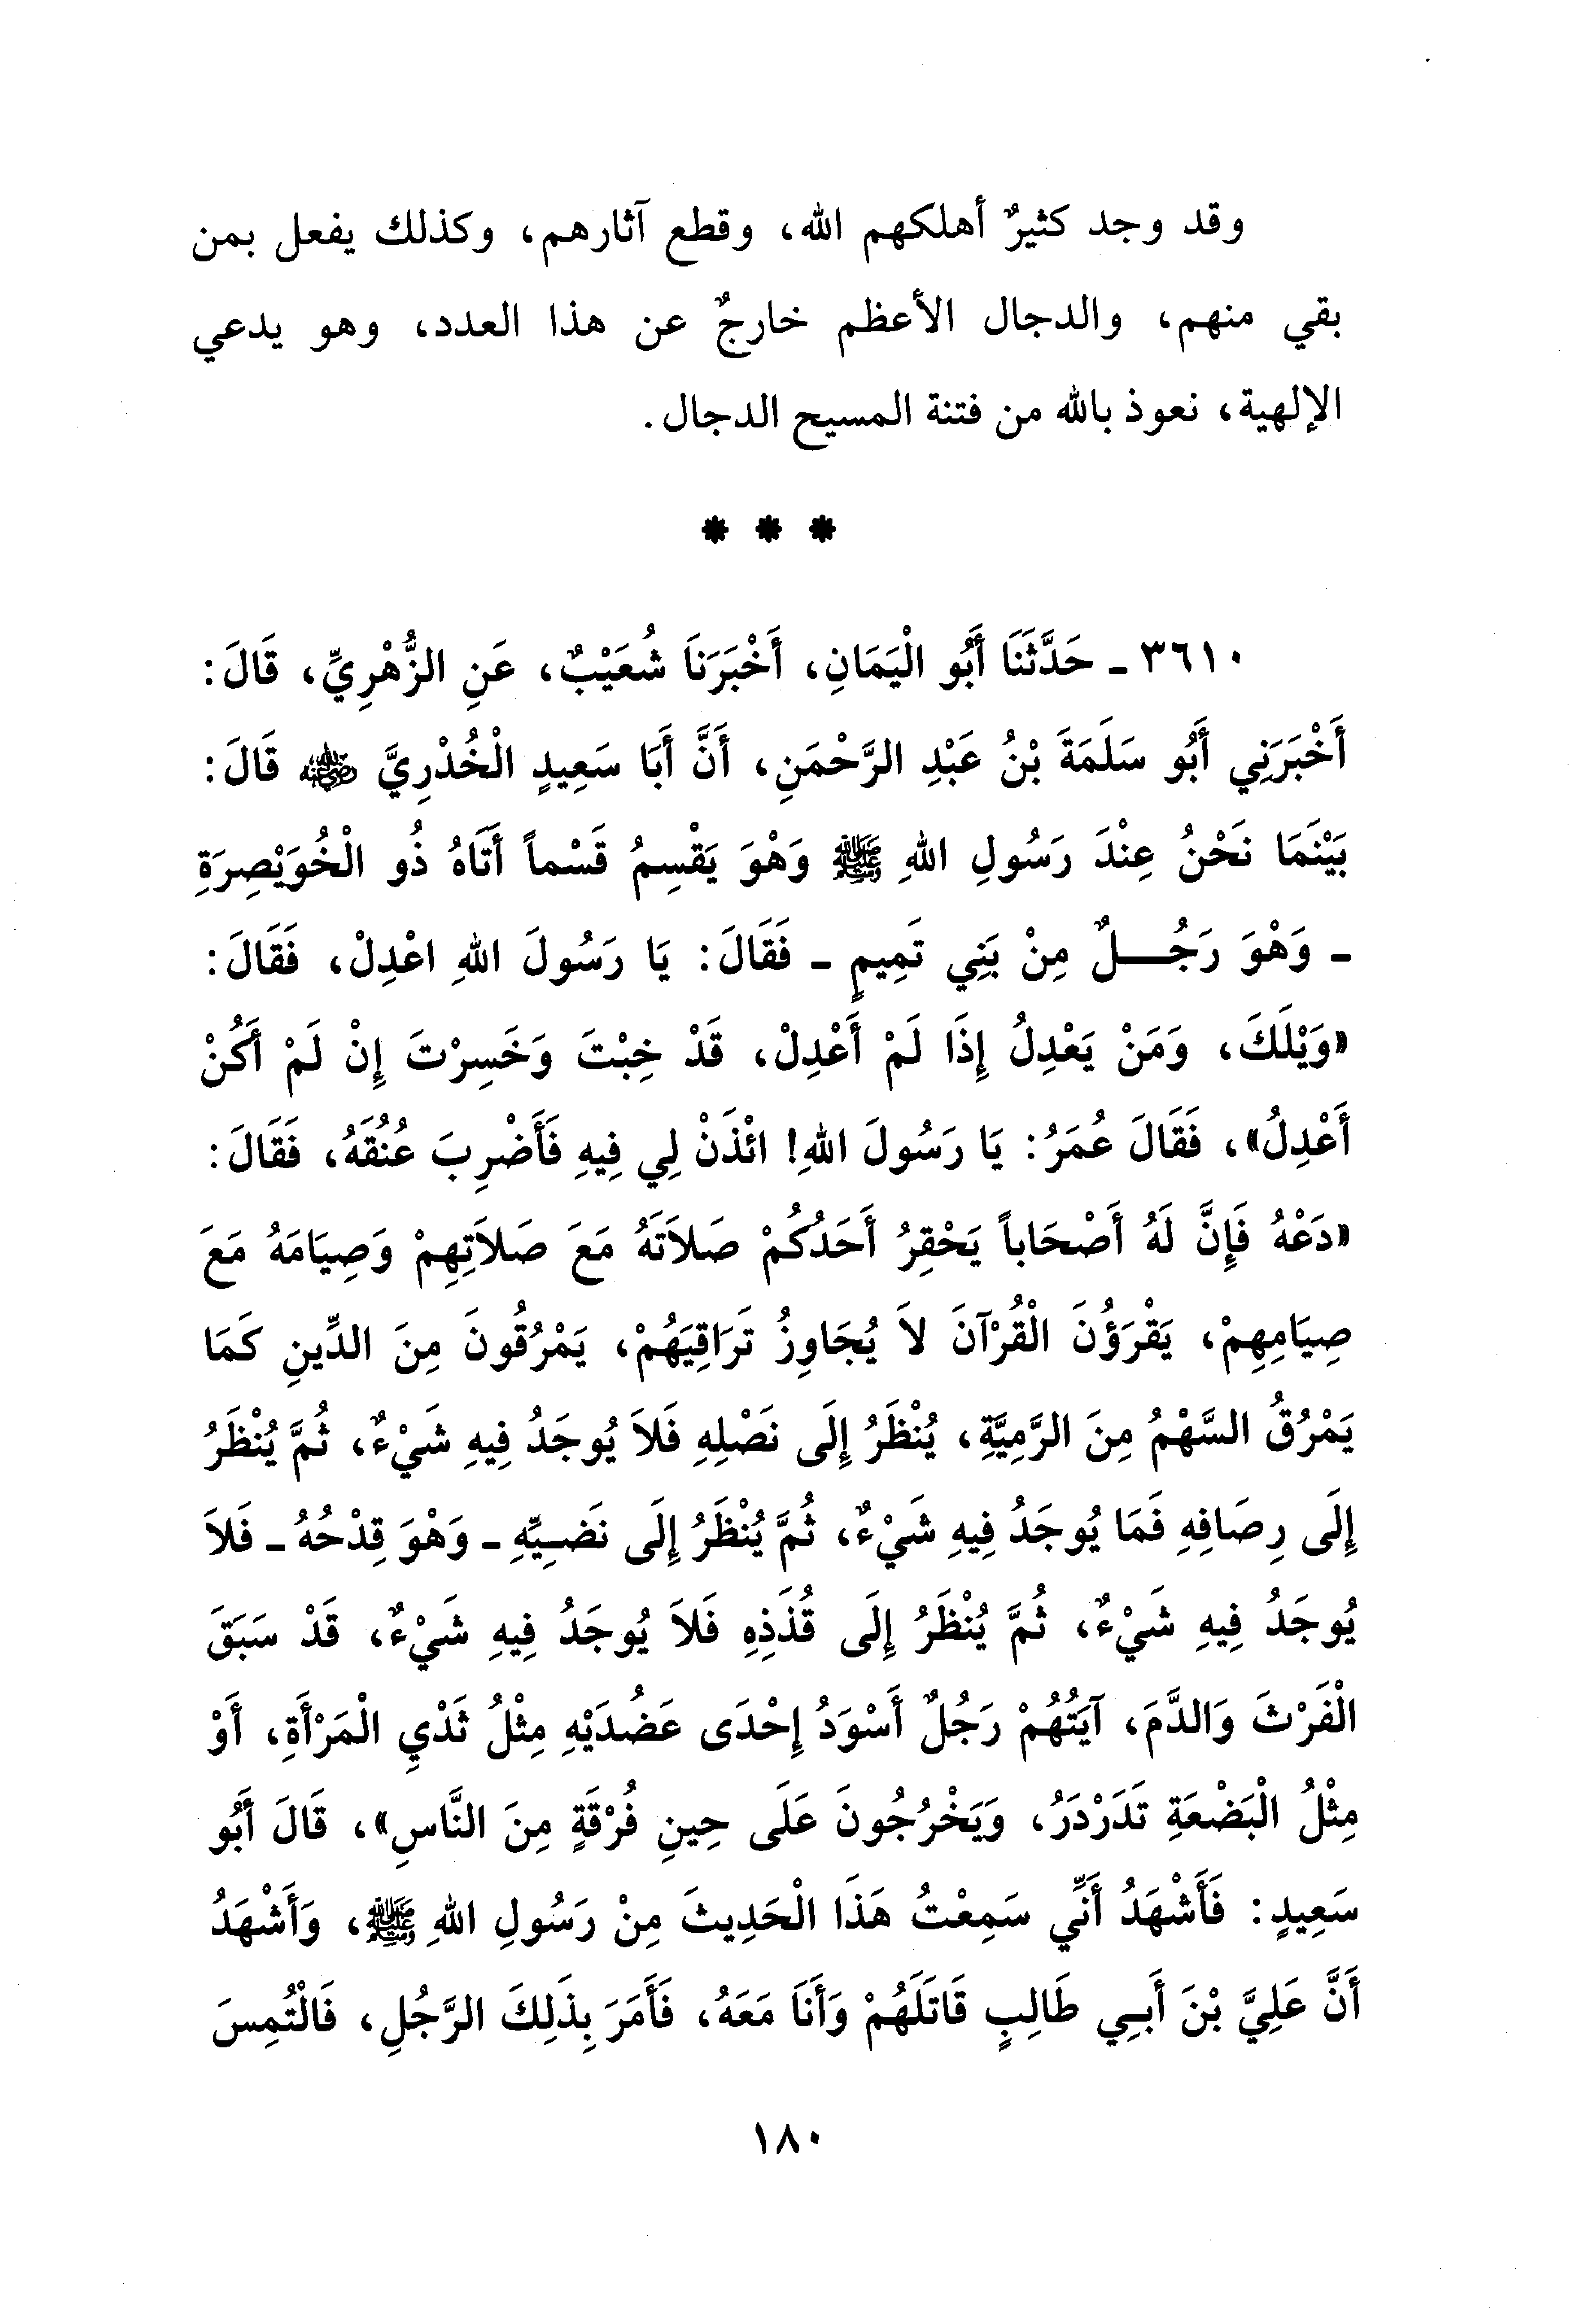 وقد وجد كثيرٌ أهلكهم الله، وقطع آثارهم، وكذلك يفعل بمن
بقي منهم، والدجال الأعظم خارجٌ عن هذا العدد، وهو يدعي
الإلهية، نعوذ بالله من فتنة المسيح الدجال.
* * *
٣٦١٠ ـ حَدَّثَنَا أَبُو الْيَمَانِ، أَخْبَرَنَا شُعَيْبٌ، عَنِ الزُّهْرِيِّ، قَالَ:
أَخْبَرَنِي أَبُو سَلَمَةَ بْنُ عَبْدِ الرَّحْمَنِ، أَنَّ أَبَا سَعِيدٍ الْخُدْرِيَّ رضي الله عنه قَالَ:
بَيْنَمَا نَحْنُ عِنْدَ رَسُولِ اللهِ ﷺ وَهْوَ يَقْسِمُ قَسْماً أَتَاهُ ذُو الْخُوَيْصِرَةِ
ـ وَهْوَ رَجُـــلٌ مِنْ بَنِي تَمِيمٍ ـ فَقَالَ: يَا رَسُولَ اللهِ اعْدِلْ، فَقَالَ:
«وَيْلَكَ، وَمَنْ يَعْدِلُ إِذَا لَمْ أَعْدِلْ، قَدْ خِبْتَ وَخَسِرْتَ إِنْ لَمْ أَكُنْ
أَعْدِلُ»، فَقَالَ عُمَرُ: يَا رَسُولَ اللهِ! ائْذَنْ لِي فِيهِ فَأَضْرِبَ عُنُقَهُ، فَقَالَ:
«دَعْهُ فَإِنَّ لَهُ أَصْحَاباً يَحْقِرُ أَحَدُكُمْ صَلاَتَهُ مَعَ صَلاَتِهِمْ وَصِيَامَهُ مَعَ
صِيَامِهِمْ، يَقْرَؤُنَ الْقُرْآنَ لاَ يُجَاوِزُ تَرَاقِيَهُمْ، يَمْرُقُونَ مِنَ الدِّينِ كَمَا
يَمْرُقُ السَّهْمُ مِنَ الرَّمِيَّةِ، يُنْظَرُ إِلَى نَصْلِهِ فَلاَ يُوجَدُ فِيهِ شَيْءٌ، ثُمَّ يُنْظَرُ
إِلَى رِصَافِهِ فَمَا يُوجَدُ فِيهِ شَيْءٌ، ثُمَّ يُنْظَرُ إِلَى نَضِيِّهِ ـ وَهْوَ قِدْحُهُ ـ فَلاَ
يُوجَدُ فِيهِ شَيْءٌ، ثُمَّ يُنْظَرُ إِلَى قُذَذِهِ فَلاَ يُوجَدُ فِيهِ شَيْءٌ، قَدْ سَبَقَ
الْفَرْثَ وَالدَّمَ، آيَتُهُمْ رَجُلٌ أَسْوَدُ إِحْدَى عَضُدَيْهِ مِثْلُ ثَدْيِ الْمَرْأَةِ، أَوْ
مِثْلُ الْبَضْعَةِ تَدَرْدَرُ، وَيَخْرُجُونَ عَلَى حِينِ فُرْقَةٍ مِنَ النَّاسِ»، قَالَ أَبُو
سَعِيدٍ: فَأَشْهَدُ أَنِّي سَمِعْتُ هَذَا الْحَدِيثَ مِنْ رَسُولِ اللهِ ﷺ، وَأَشْهَدُ
أَنَّ عَلِيَّ بْنَ أَبِـي طَالِبٍ قَاتَلَهُمْ وَأَنَا مَعَهُ، فَأَمَرَ بِذَلِكَ الرَّجُلِ، فَالْتُمِسَ
١٨٠